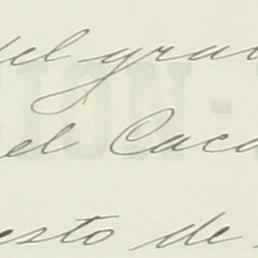 del gran
el Caca
esto de